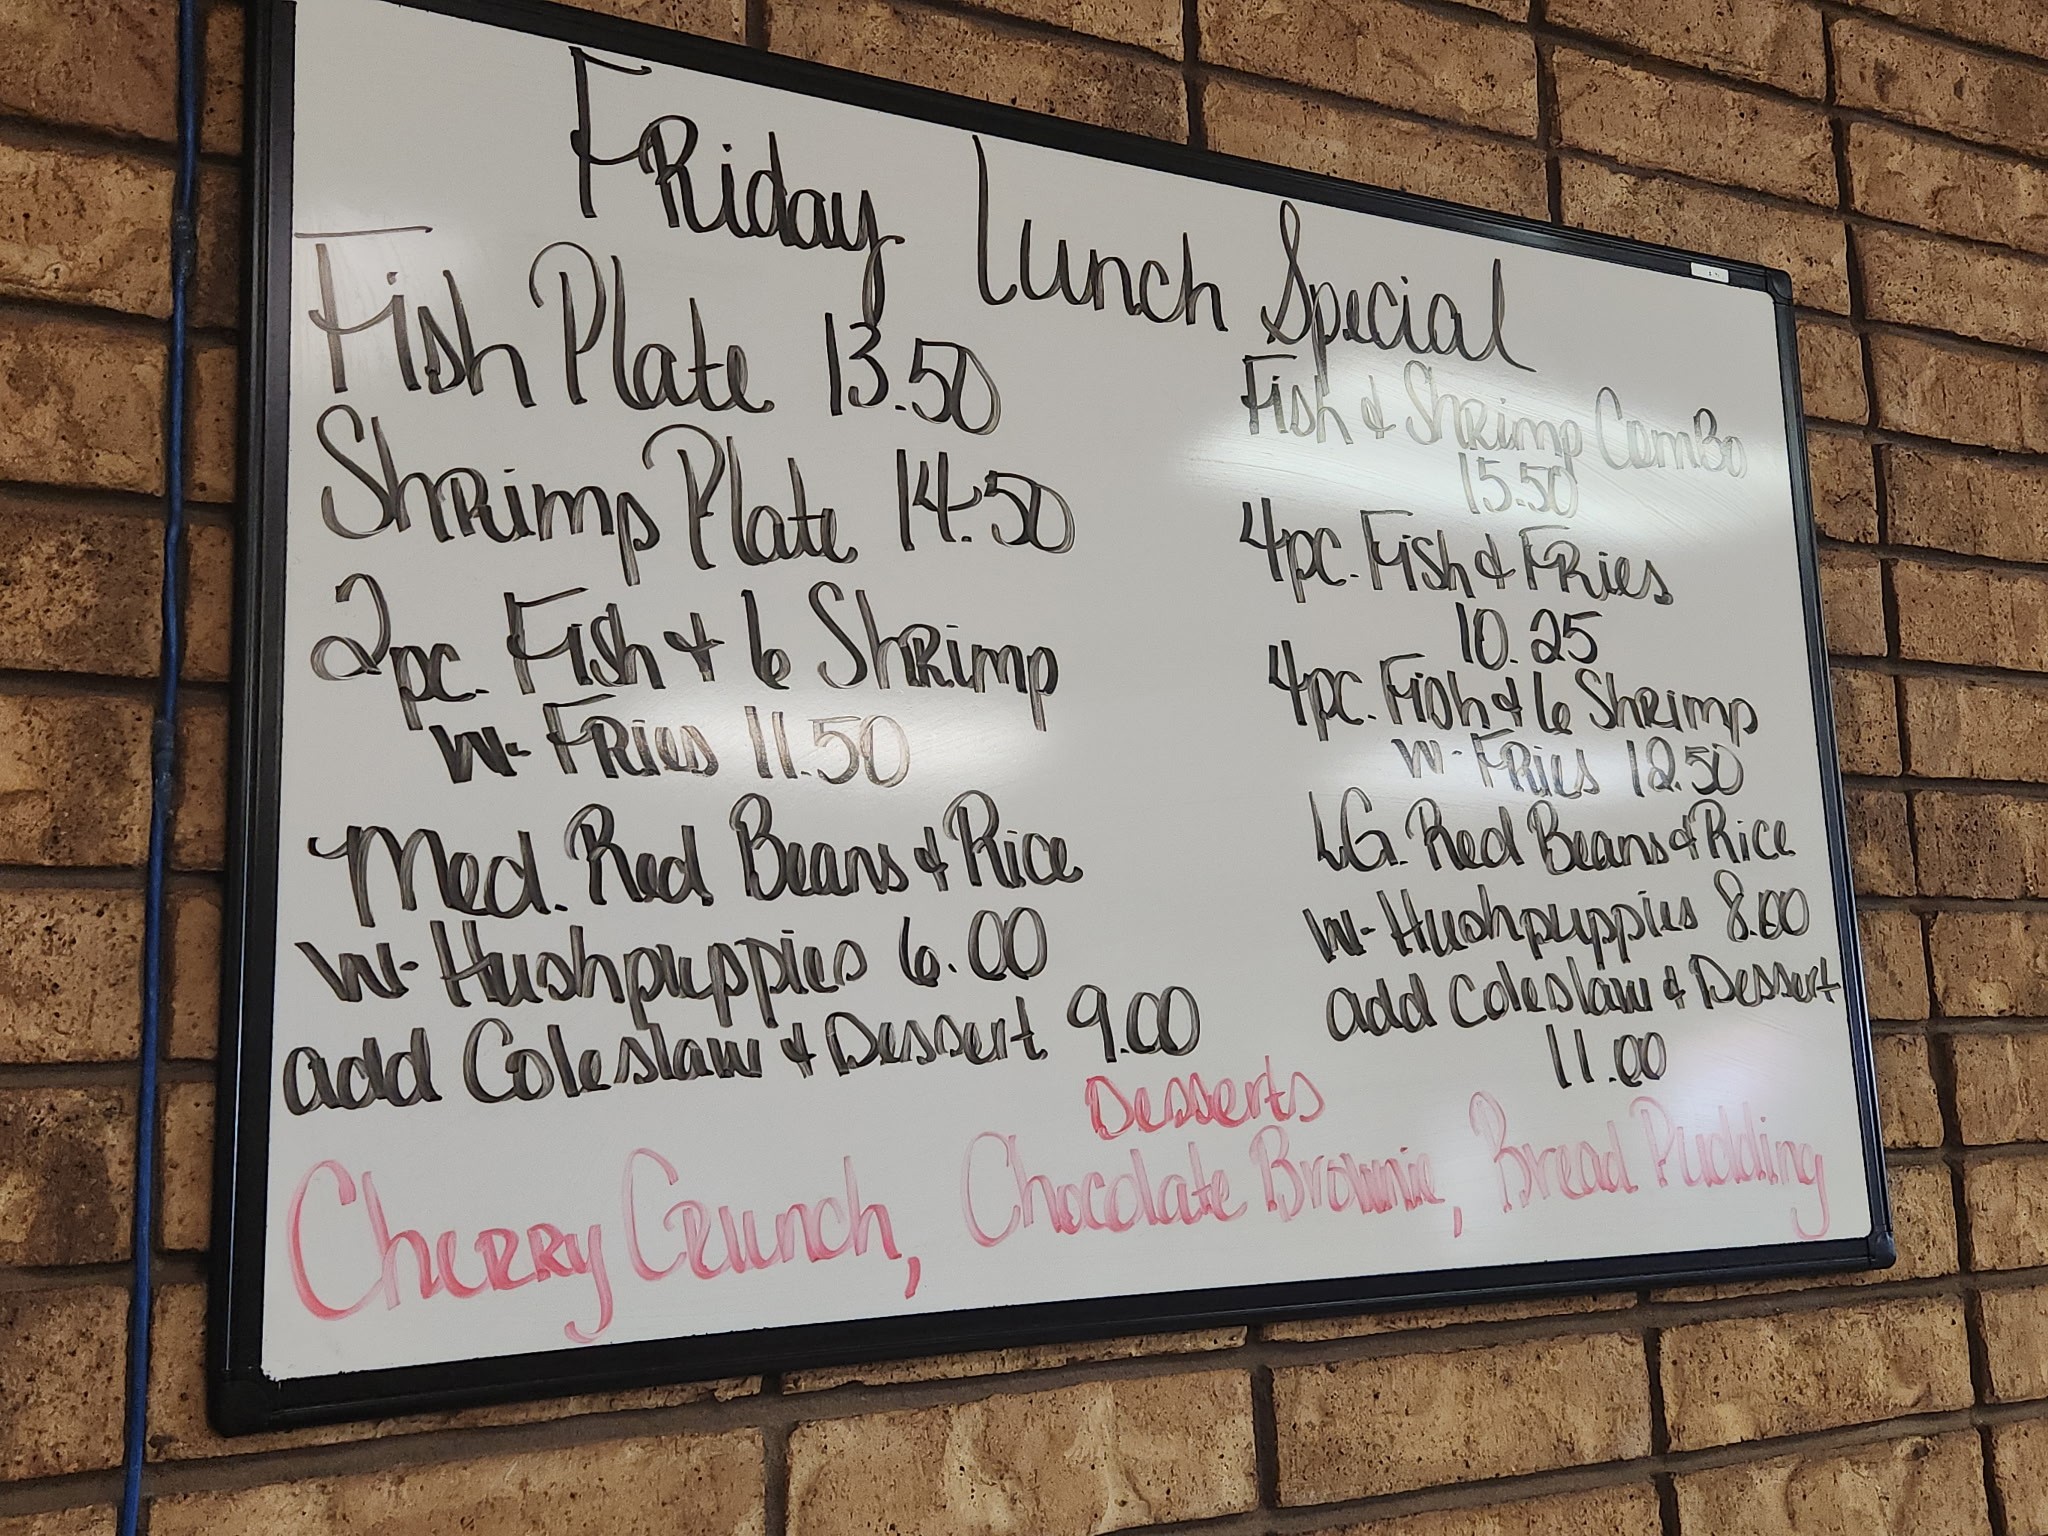 Friday Lunch Special
Fish Plate 13.50
Shrimp Plate 14.50
2pc. Fish & 6 Shrimp
w- Fries 11.50
Med. Red Beans & Rice
w- Hushpuppies 6.00
add Coleslaw & Dessert 9.00
Fish & Shrimp Combo
15.50
4pc. Fish & Fries
10.25
4pc. Fish & 6 Shrimp
w- Fries 12.50
LG. Red Beans & Rice
w- Hushpuppies 8.00
add Coleslaw & Dessert
11.00
Desserts
Cherry Crunch, Chocolate Brownie, Bread Pudding